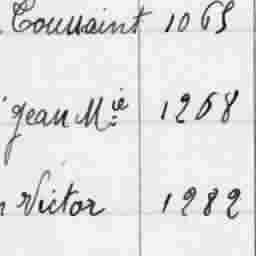 Toussaint 1065
Jean Mie 1268
Victor 1282